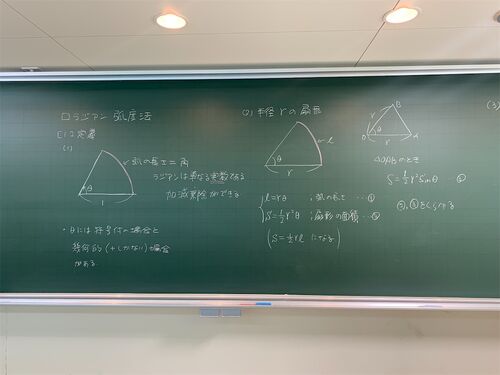 □ ラジアン 弧度法
[1] 定義
(1)
θ
1
弧の長さ = 角
ラジアンは単なる実数である
加減乗除ができる
・θには符号付の場合と
幾何的 (+しかない) 場合
がある
(2) 半径 r の扇形
θ
r
l
l = rθ ; 弧の長さ … ①
S = ½r²θ ; 扇形の面積 … ②
(S = ½rl になる)
B
r
θ
O
A
r
△OABのとき
S = ½r² sinθ … ③
②, ③をくらべる
(3)